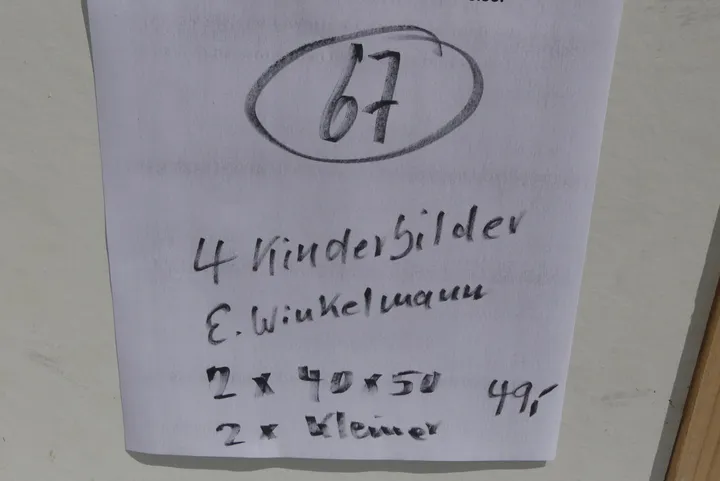 67
4 Kinderbilder
E. Winkelmann
2 x 40 x 50 49,-
2 x kleiner